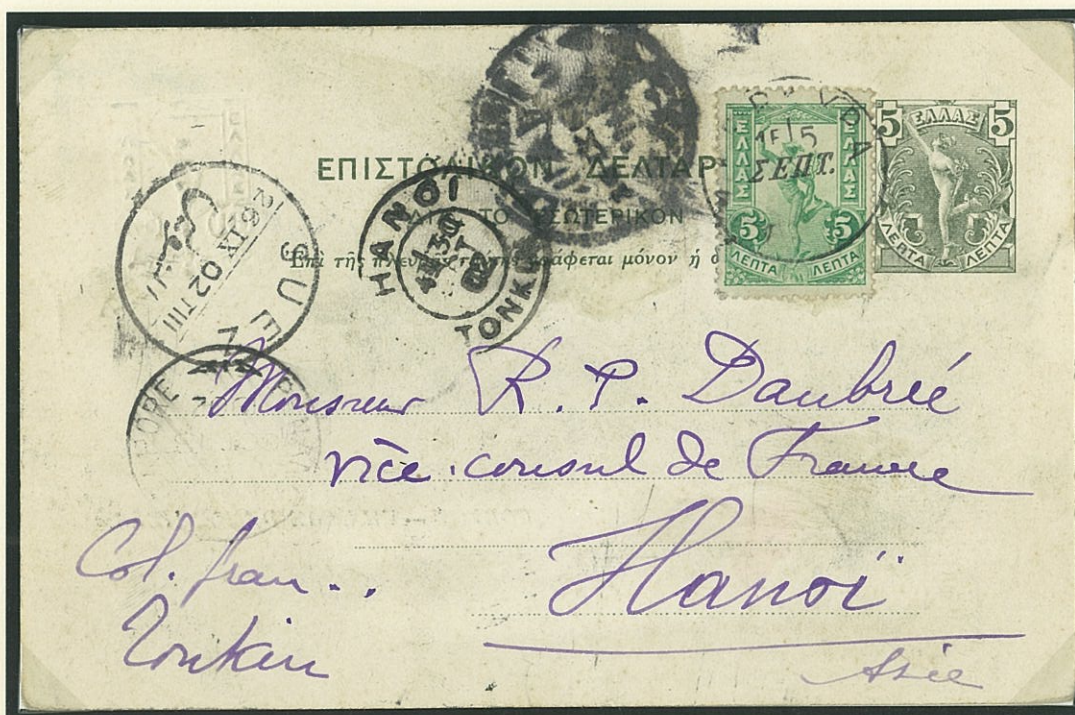 ΕΠΙΣΤΟΛΙΚΟΝ ΔΕΛΤΑΡ
ΔΙΑ ΤΟ ΕΣΩΤΕΡΙΚΟΝ
Ἐπὶ τῆς πλευρᾶς ταύτης γράφεται μόνον ἡ
ΕΛΛΑΣ
ΕΛΛΑΣ
5 5
ΛΕΠΤΑ ΛΕΠΤΑ
5 ΕΛΛΑΣ 5
ΛΕΠΤΑ ΛΕΠΤΑ
ΣΕΠΤ.
15
HANOI
TONKIN
02
SUEZ
26 IX 02 TIII
PORE
Monsieur R. P. Daubrée
vice-consul de France
Hanoï
Asie
Col. fran..
Tonkin